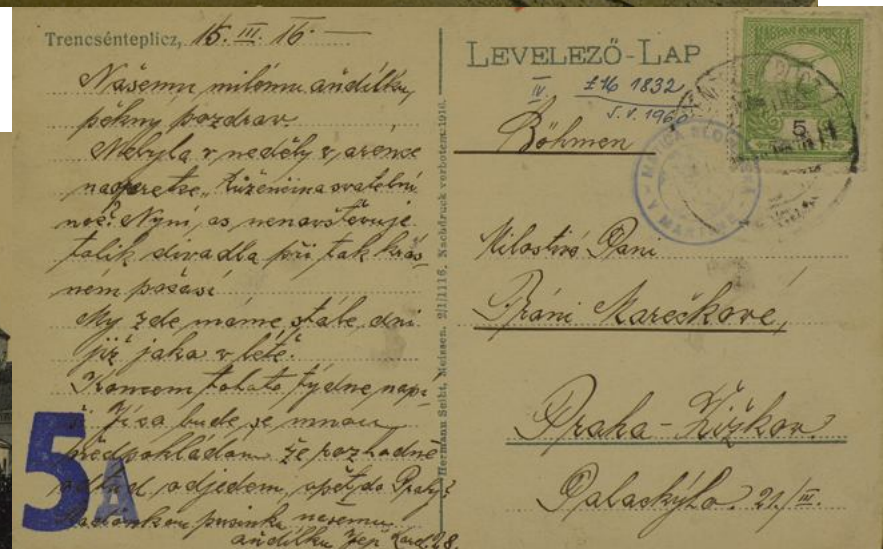 Trencsénteplicz, 15. III. 16.
Našemu milému andílku
pěkný pozdrav.
Nebyla v neděly v arénce
na operetce „Růženčina svatební
noc? Nyní, as nenavštěvuje
tolik divadla při tak krás-
ném počasí
My zde máme stále dni
již jako v létě.
Koncem tohoto týdne napí-
bude se mnou
předpokládám že rozhodně
odtud odjedem, opět do Prahy?
pusinku našemu
andílku Jep
5A
Hermann Seibt, Meissen. 2/1/1116. Nachdruck verboten. 1916.
LEVELEZŐ-LAP
IV. 1832
5. V. 1960
Böhmen
MAGYAR KIR. POSTA
5
MATICA SLOVENSKÁ
V MARTINE
Milostivá Paní
Fráni Marečkové,
Praha-Žižkov.
Palackýho 21./III.